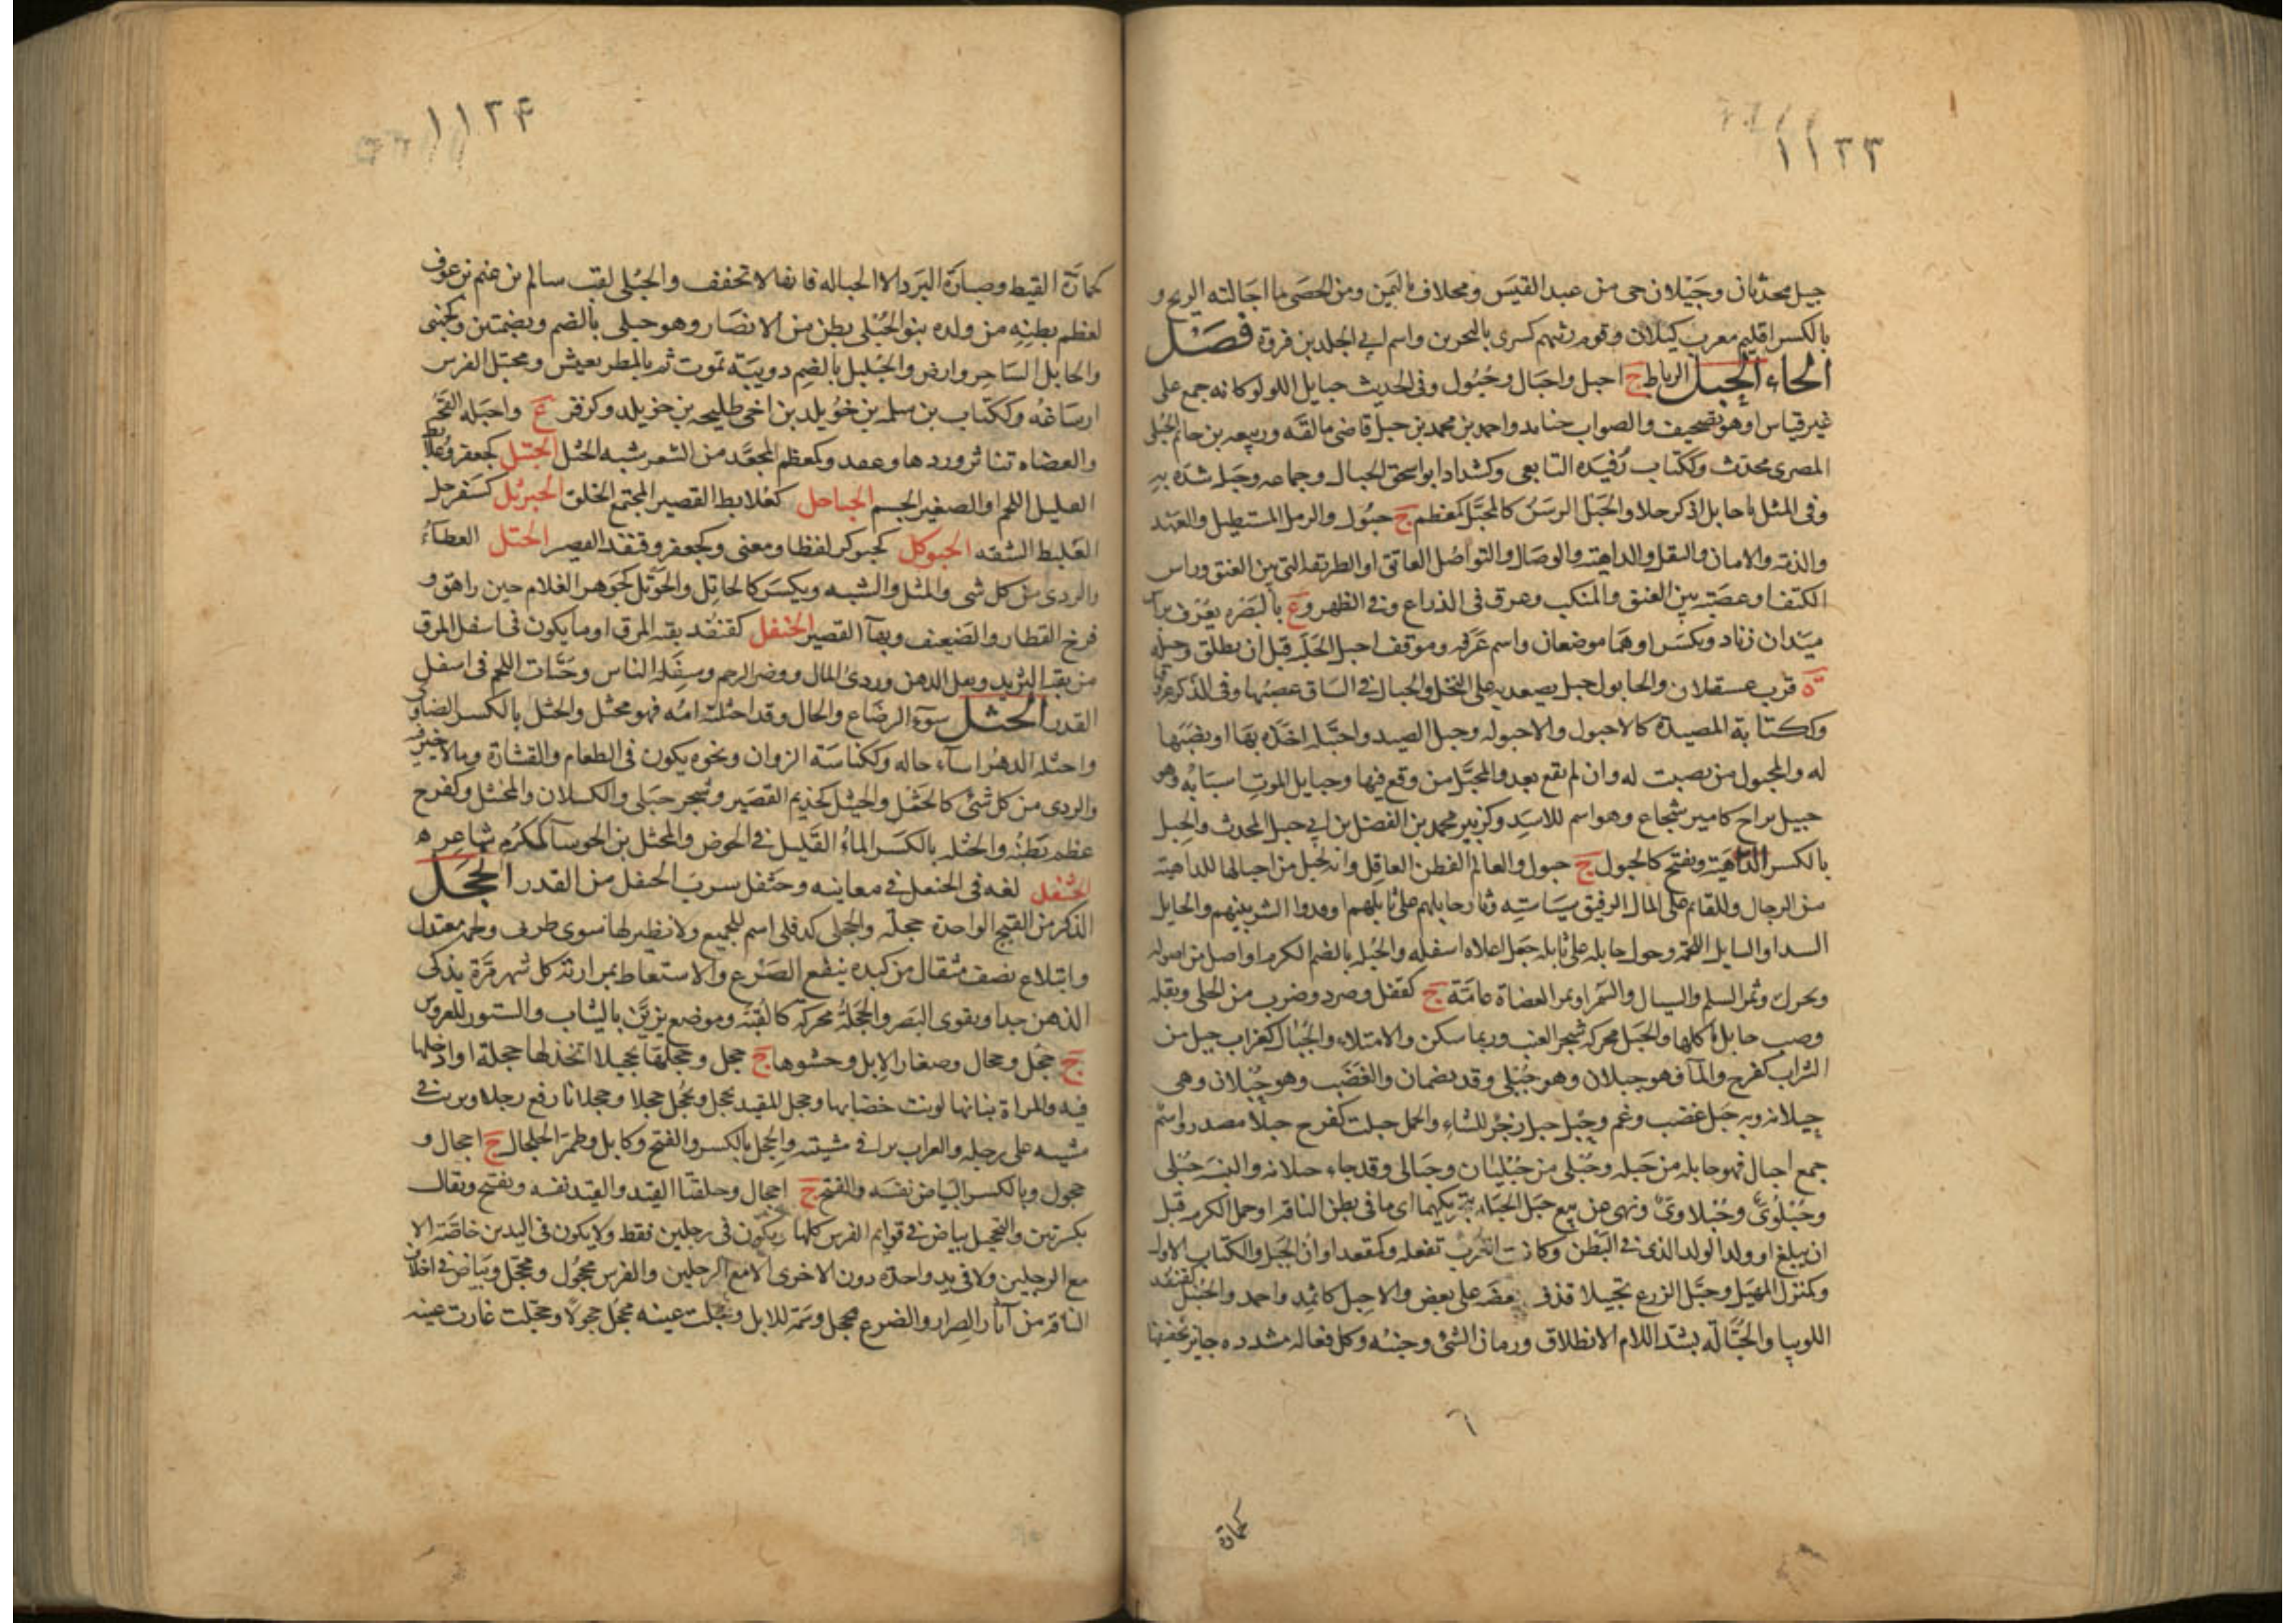 ١١٣٣
جيل محدثان وجَيْلان حى من عبد القيَس ومخلاف باليَمن ومن الحصَى ما اجَالته الريح و
بالكسر اقليم معرب كيلان وقوم رتبهم كسرى بالبحرين واسم ابى الجلد بن فروة فصَل
الحاء الحَبل الرباط ج احبل واحبَال وحُبُول وفى الحديث حبايل اللولو كانه جمع على
غير قياس او هو تصحيف والصواب جنابذ واحمد بن محمد بن حبل قاضى مالقَه وربيعه بن حاتم الحُبلى
المصرى محدث وككتاب رُفيَده التابعى وكشداد ابو اسحق الحبال وجماعه وحَبله شدّه به
وفى المثل يا حابل اذكر حلا والحَبل الرسَنُ كالمحبَّل كمعظم ج حبُول والرمل المستطيل والعَهد
والذمه والامان والثقل والداهيَه والوصَال والتواصُل العاتق او الطريقه التى بين العنق وراس
الكتف او عصَبَة بين العنق والمنكب وعرق فى الذراع وفى الظهر وع بالبَصَره يعُرف براس
ميَدان زياد ويكسَر او همَا موضعان واسم عَرَفه وموقف احبل الحَلبَه قبل ان يطلق وحبله
ة قرب عسقلان والحابول حبل يصعد به على النخل والحبال فى السَاق عصبُها وفى الذكر عروقه
وككتابة المصيدة كالاحبول والاحبوله وحبل الصيد واحتبله اخذه بهَا او نصَبَها
له والمحبول من نصبت له وان لم يقع بعد والمحتبَل من وقع فيها وحبايل الموت اسبَابُه وهو
حبيل براح كامير شجاع وهو اسم للاسَد وكزبير محمد بن الفضل بن ابى حبل المحدث والحِبل
بالكسر الداهيَة ويفتح كالحبول ج حبول والعالم الفطن العاقل وانه لحبل من احبالها للداهيَه
من الرجال وللقايم على المال الرفيق بسيَاستِه وثار حابلهم على نابلهم اوقدوا الشر بينهم والحابل
السدا والنابل اللحمَه وحول حابله على نابله جعل اعلاه اسفله والحُبله بالضم الكرم او اصل من اصوله
ويحرك وثمر السلم والسيال والسَمر او ثمر العضَاه عامَّة ج كقفل وصرد وضرب من الحلى وبقله
وضب حابل ياكلها والحَبل محركه شجر العنب وربما سكن والامتلاء والحُبَال كغراب حبل من
الشراب كفرح والماء فهو حبلان وهو حُبْلى وقد يضمان والغضَب وهو حُبْلان وهى
حبلانه وبه حبَل غضب وغم وحِبْل حبل زجر للشاء والحمل حبلت كفرح حبلاً مصدر واسْم
جمع احبال فهو حابله من حَبله وحُبْلى من حُبْليَات وحَبالى وقد جاء حبلانه والنسبَه حُبْلى
وحُبْلَوىّ وحُبْلاوىّ ونهى عن بيع حبَل الحبَله بتحريكهما اى ما فى بطن الناقه او حمل الكرمه قبل
ان يبلغ او ولد الولد الذى فى البَطْن وكانت العَرَب تفعله وكمقعد اوان الحبَل والكتاب الاول
وكمنزل المهبَل وحبَّل الزرع تحبيلا قذف بعضَه على بعض والاحبل كاثمد واحمد والحُنبُل كقنفذ
اللوبيا والحَبَالّه بشد اللام الانطلاق وزمان الشئ وحينه وكل فعاله مشدده جايز تخفيفها
كحمارّة
١١٣۴
كحمارّة القيظ وصبارّة البَرد الا الحباله فانها لا تخفف والحُبْلى لقب سالم بن غنم بن عوف
لعظم بطنِه من ولده بنو الحُبْلى بطن من الانصَار وهو حبلى بالضم وبضمتين وكجهنى
والحابل السَاحِر وارض والحُبْليل بالضم دويبّة تموت ثم بالمطر يعيش ومحتبَل الفرس
ارسَاغه وككتاب بن سلمه بن خُويلد بن اخى طليحه بن خويلد وكزفر ع واحبَله القحَه
والعضاه تناثر وردها وعقد وكمعظم المجعَّد من الشعر شبه الجثل الحَبتل كجعفر وعلابط
القليل اللحم او الصغير الجسم الحباجل كعُلابط القصير المجتمع الخلق الحَبَربَل كسَفرجل
الغليظ الشفه الحبوكل كحبوكر لفظا ومعنى وكجعفر وقنفذ القصير الحَتل العطآء
والردى من كل شى والمثل والشبه ويكسَر كالحاتِل والحَوتَل كجَوهر الغلام حين راهق و
فرخ القطا والضَعيف وبهآء القصير الحُتفل كقنفذ بقيه المرق او ما يكون فى اسفل المرق
من بقيه الثريد وثفل الدهن وردئ المال ووضر الرحم وسِفَله الناس وحَتَات اللحم فى اسفل
القدر الحَثل سوء الرضَاع والحال وقد احثلته امُه فهو محثل والحثل بالكسر الضاوى
واحثله الدهرُ اسآء حاله وككناسَة الزوان ونحوه يكون فى الطعام والقشارة وما لا خير فيه
والردى من كل شئ كالحَثل والحثيَل كحذيم القصَير وشجر جبَلى والكسلان والمحثئل وكفرح
عظم بَطنُه والحثله بالكسَر الماءُ القَليل فى الحوض والمحثل بن الحوسآ كمكرَم شاعره
الحُثفل لغه فى الحتفل فى معانيه وحثفل شرب الحثفل من القدر الحَجَل
الذكر من القبج الواحدة حجلّه والحِجْلى كدفلى اسم للجميع ولا نظير لها سوى ظربى ولحمه معتدل
وابتلاع نصف مثقال من كبده ينفع الصَرْع والاستعاط بمرارته كل شهر مَرَّة يذكى
الذهن جدا ويقوى البَصر والحَجَلهُ محركه كالقُبَه وموضع يزيَّن بالثياب والستور للعروس
ج حجَل وحجال وصغار الابل وحشوها ج حجل وحجلهَا تحجيلا اتخذ لها حجلة او ادخلها
فيه والمراة بنانها لونت خضابها وحجل المقيد يحجل ويحجُل حجلا وحجلانا رفع رجلا وتريث فى
مشيه على رجله والغراب نزا فى مشيته والحجل بالكسر والفتح وكابل وطمر الخلخال ج احجال و
حجول وبالكسر البيَاض نفسَه وبالفتح ج احجال وحلقتا القيد والقيد نفسه ويفتح ويقال
بكسرتين والتحجيل بياض فى قوايم الفرس كلها يكون فى رجلين فقط ولا يكون فى اليدين خاصَّة الا
مع الرجلين ولا فى يد واحدة دون الاخرى الا مع الرجلين والفرس محجُول ومحجّل وبيَاض فى اخلاف
الناقه من آثار الصِرار والضرع محجل وسَمة للابل وحجلت عينه تحجُل حجولاً وحجّلت غارت عينه